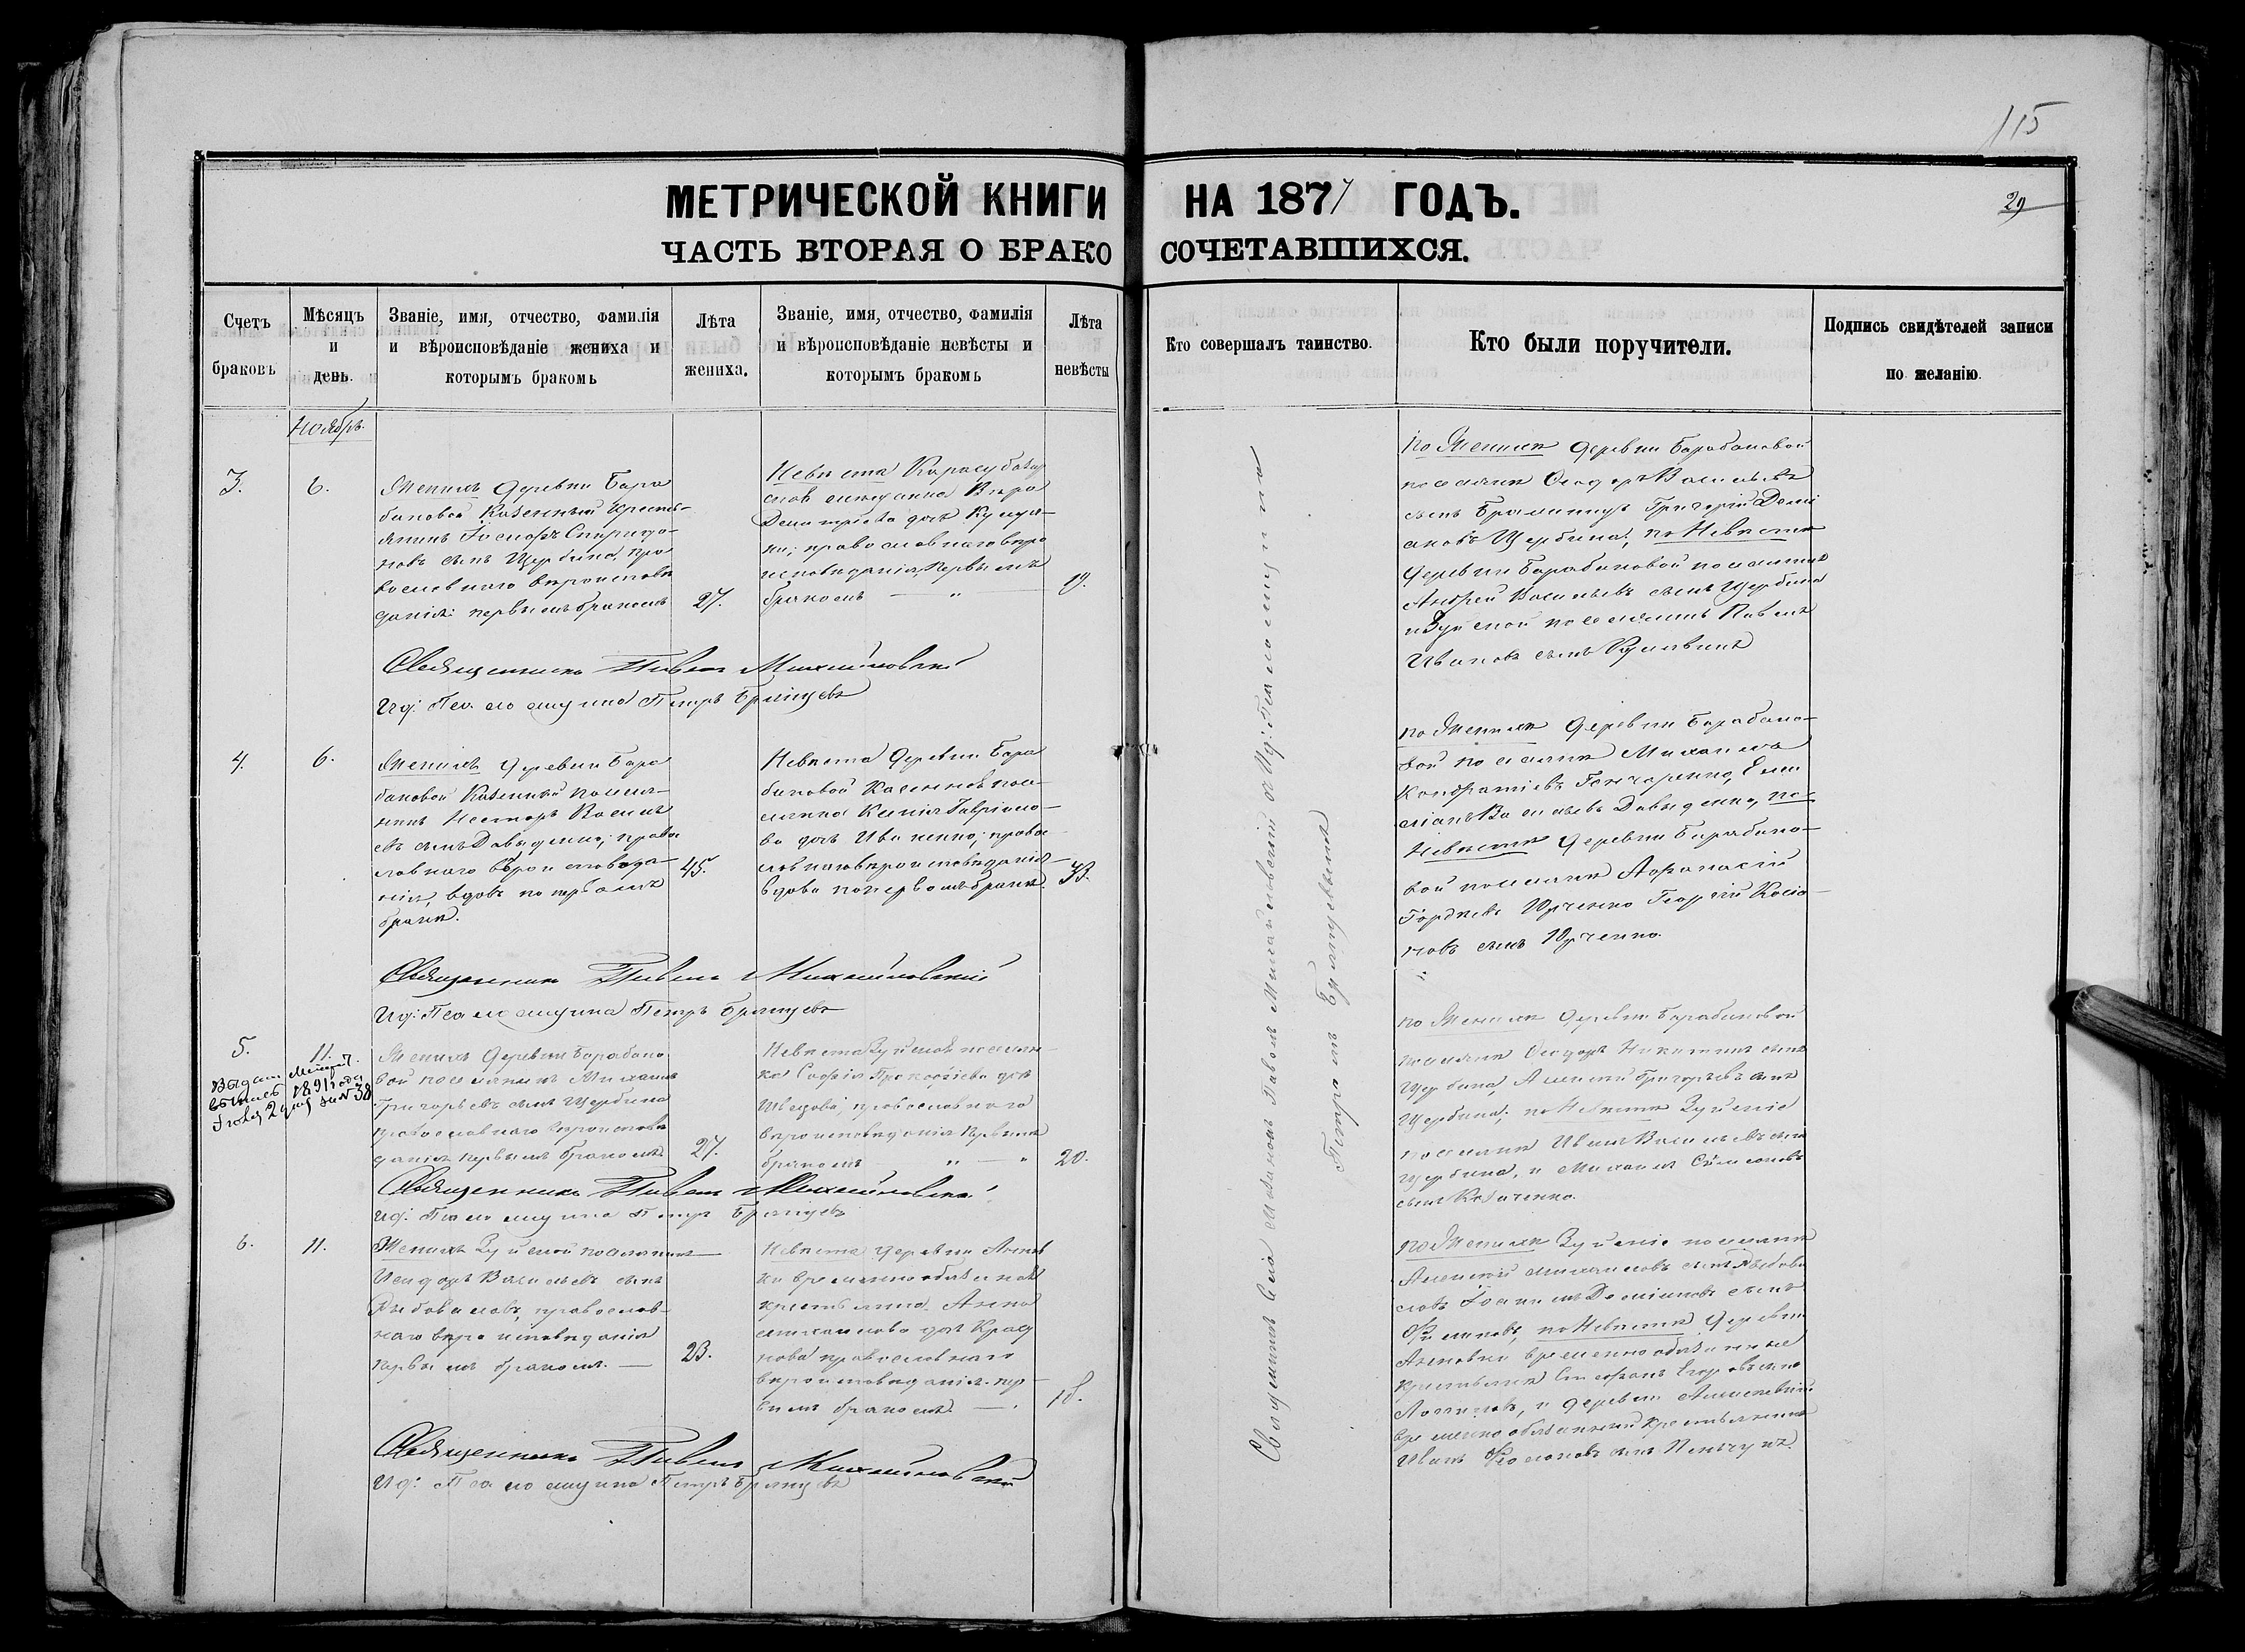 115
МЕТРИЧЕСКОЙ КНИГИ НА 1877 ГОДЪ.
29
ЧАСТЬ ВТОРАЯ О БРАКОСОЧЕТАВШИХСЯ.
Счетъ браковъ
Мѣсяцъ и день.
Званіе, имя, отчество, фамилія
и вѣроисповѣданіе жениха и
которымъ бракомъ
Лѣта жениха.
Званіе, имя, отчество, фамилія
и вѣроисповѣданіе невѣсты и
которымъ бракомъ
Лѣта невѣсты
Кто совершалъ таинство.
Кто были поручители.
Подпись свидѣтелей записи
по желанію.
Ноябрь.
3.
6.
Женихъ деревни Бара
бановой Казенный кресть-
янинъ Іосифъ Спиридо-
новъ сынъ Щербина, пра
вославнаго вѣроисповѣ
данія: первымъ бракомъ
27.
Невѣста Карасубазар
ская мещанка Вѣра
Димитріева дочь
православнаго вѣро
исповѣданія, первымъ
бракомъ — " —
19.
по Женихѣ деревни Барабановой
поселяне Ѳеодоръ Васильевъ
сынъ Григорій Деми
ановъ Щербина; по Невѣстѣ
деревни Барабановой поселянинъ
Андрей Васильевъ сынъ Щербина
и Зуйской поселянинъ Павелъ
Ивановъ сынъ
Священникъ Павелъ Михайловскій
Ид: Псаломщика Петръ Брянцевъ
4.
6.
Женихъ деревни Бара
бановой Казенный посел-
янинъ Несторъ Василь
евъ сынъ Давыденко; право
славнаго вѣроисповѣда-
нія, вдовъ по первомъ
бракѣ.
45.
Невѣста деревни Бара
бановой Казенная посе-
лянка Ксенія Гавріило-
ва дочь Иваненко; право
славнаго вѣроисповѣданія
вдова по первомъ бракѣ.
33.
по Женихѣ деревни Барабано-
вой поселяне Михаилъ
Кондратіевъ Гончаренко, Еми
ліанъ Васильевъ Давыденко, по
Невѣстѣ деревни Барабано-
вой поселяне Афанасій
Гордѣевъ Юрченко Георгій
новъ сынъ Юрченко.
Священникъ Павелъ Михайловскій
Ид: Псаломщика Петръ Брянцевъ
5.
11.
1891 года
за № 38
Женихъ деревни Барабано
вой поселянинъ Михаилъ
Григорьевъ сынъ Щербина
православнаго вѣроисповѣ
данія первымъ бракомъ.
27.
Невѣста Зуйская поселян-
ка Софія Прокофіева дочь
Швецова, православнаго
вѣроисповѣданія первымъ
бракомъ " — "
20.
по Женихѣ деревни Барабановой
поселяне Ѳеодоръ Никитинъ сынъ
Щербина, Алексій Григорьевъ сынъ
Щербина; по Невѣстѣ Зуйскіе
поселяне Иванъ Васильевъ сынъ
Щербина, и Михаилъ Симеоновъ
сынъ
Священникъ Павелъ Михайловскій
Ид: Псаломщика Петръ Брянцевъ
6.
11.
Женихъ Зуйской поселянинъ
Исидоръ Васильевъ сынъ
православ-
наго вѣроисповѣданія
первымъ бракомъ. —
23.
Невѣста деревни Аннов
ки временнообязанная
крестьянка Анна
Михаилова дочь
православнаго
вѣроисповѣданія. пер-
вымъ бракомъ. —
18.
по Женихѣ Зуйскіе поселяне
Алексій Михаиловъ сынъ
Іоаннъ Даміановъ сынъ
по Невѣстѣ деревни
Анновки временнообязанные
крестьяне Стефанъ Егоровъ сынъ
и деревни
временнообязанный крестьянинъ
Иванъ сынъ
Священникъ Павелъ Михайловскій
Ид: Псаломщика Петръ Брянцевъ
Священникъ Павелъ Михайловскій и Ид: Псаломщика
Петромъ Брянцевымъ